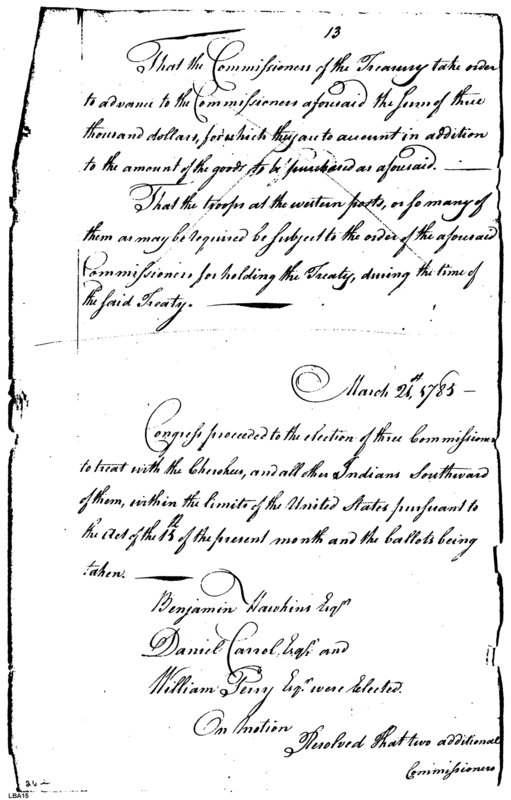 13
That the Commissioners of the Treasury take order
to advance to the Commissioners aforesaid the sum of three
thousand dollars, for which they are to account in addition
to the amount of the goods to be purchased as aforesaid.
That the troops at the western posts, or so many of
them as may be required be subject to the order of the aforesaid
Commissioners for holding the Treaty, during the time of
the said Treaty.
March 21st, 1785 —
Congress proceeded to the election of three Commissioners
to treat with the Cherokees, and all other Indians Southward
of them, within the limits of the United States pursuant to
the Act of the 15th of the present month and the ballots being
taken.
Benjamin Hawkins Esqr
Daniel Carrol Esqr and
William Perry Esqr were Elected.
On Motion
Resolved That two additional
Commissioners
LBA15